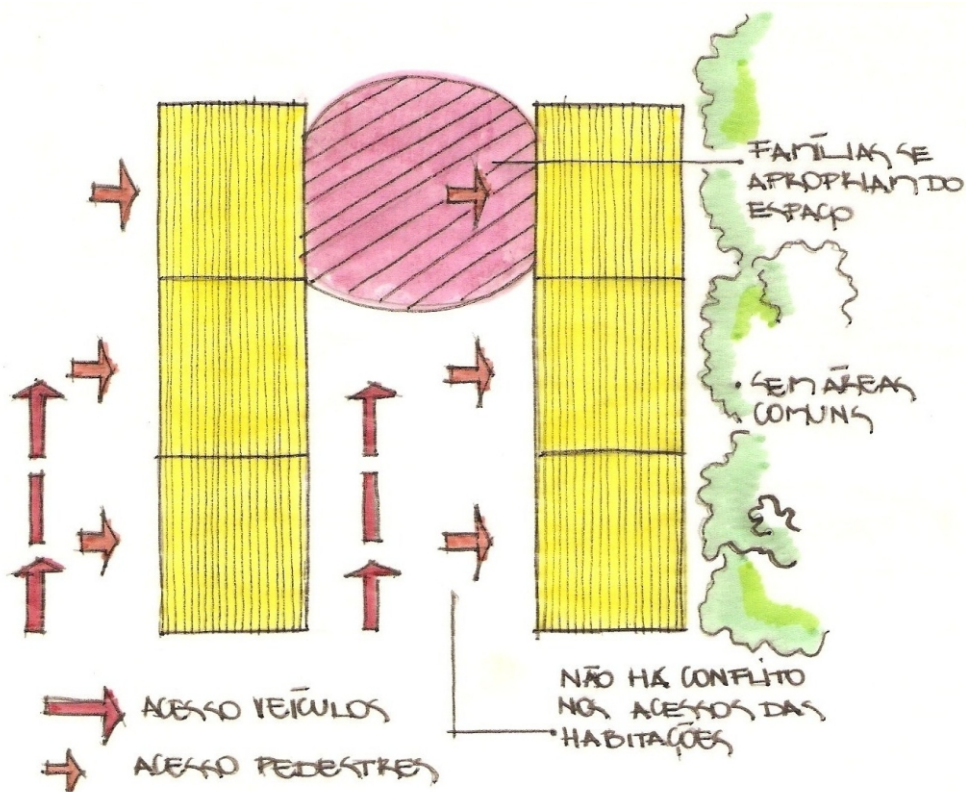 FAMÍLIAS SE
APROPRIAM DO
ESPAÇO
SEM ÁREAS
COMUNS
NÃO HÁ CONFLITO
NOS ACESSOS DAS
HABITAÇÕES
ACESSO VEÍCULOS
ACESSO PEDESTRES